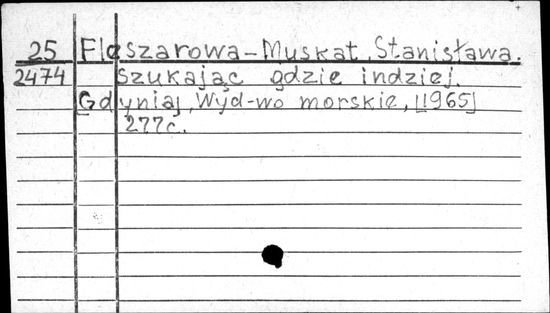 25 Fleszarowa-Muskat, Stanisława.
2474 Szukając gdzie indziej.
[Gdynia], Wyd-wo morskie, [1965]
277c.